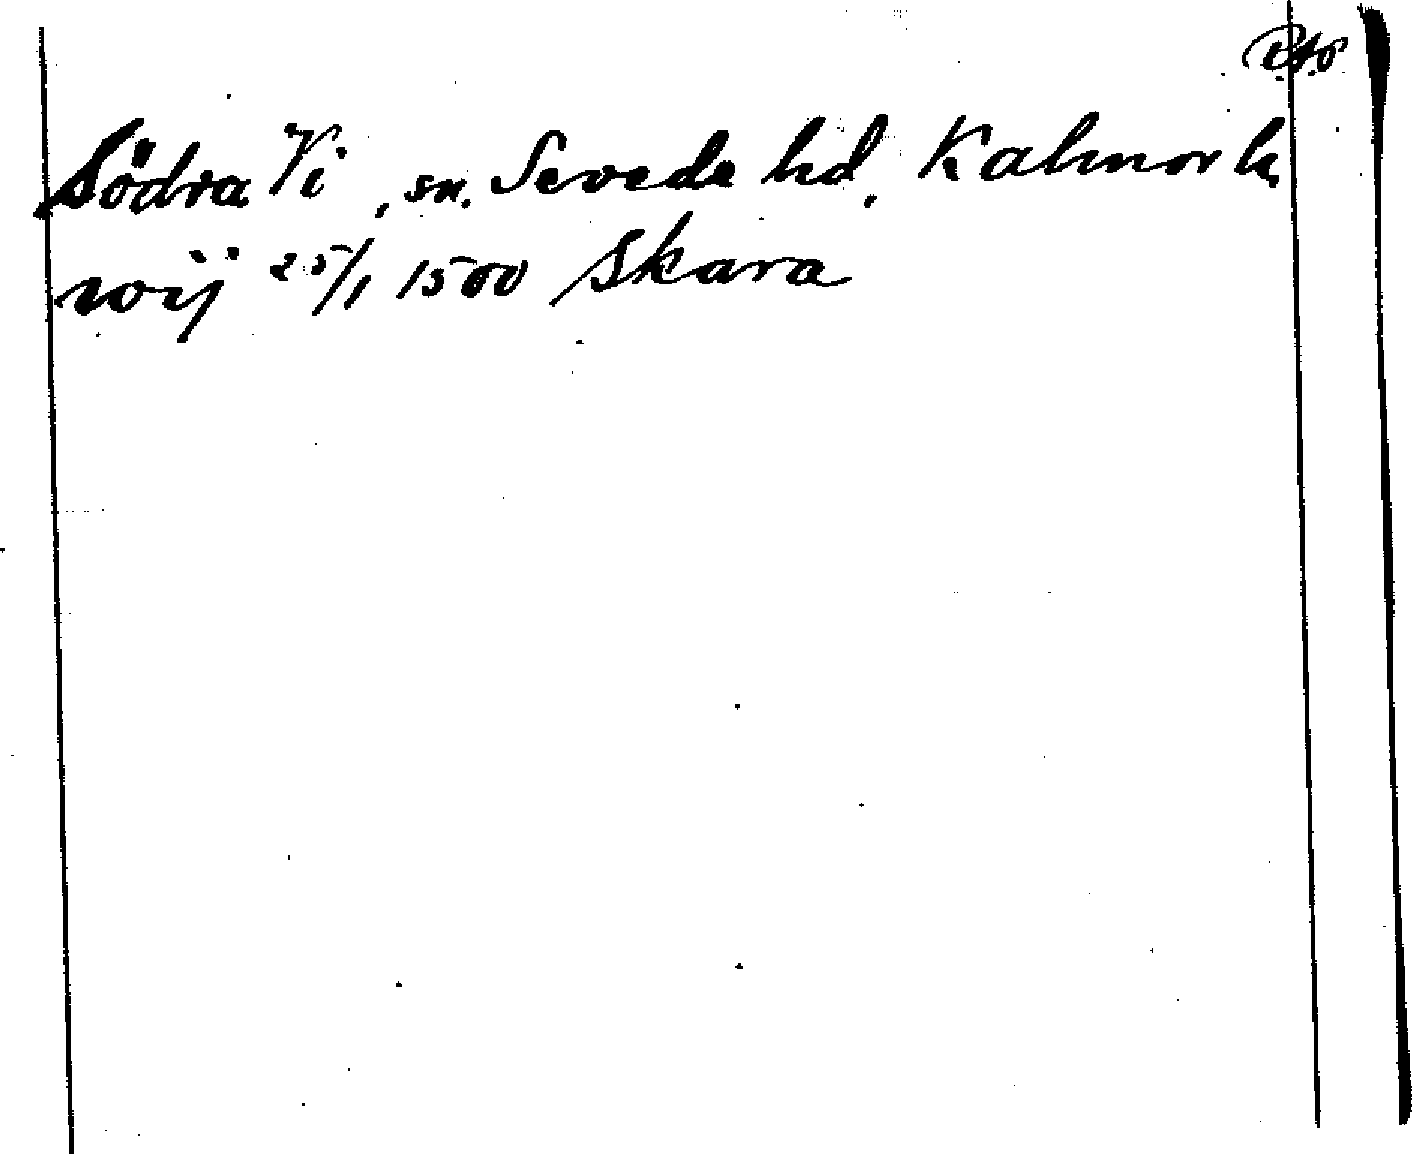 Södra Vi, sn. Sevede hd, Kalmar l.
wij 25/1 1500 Skara